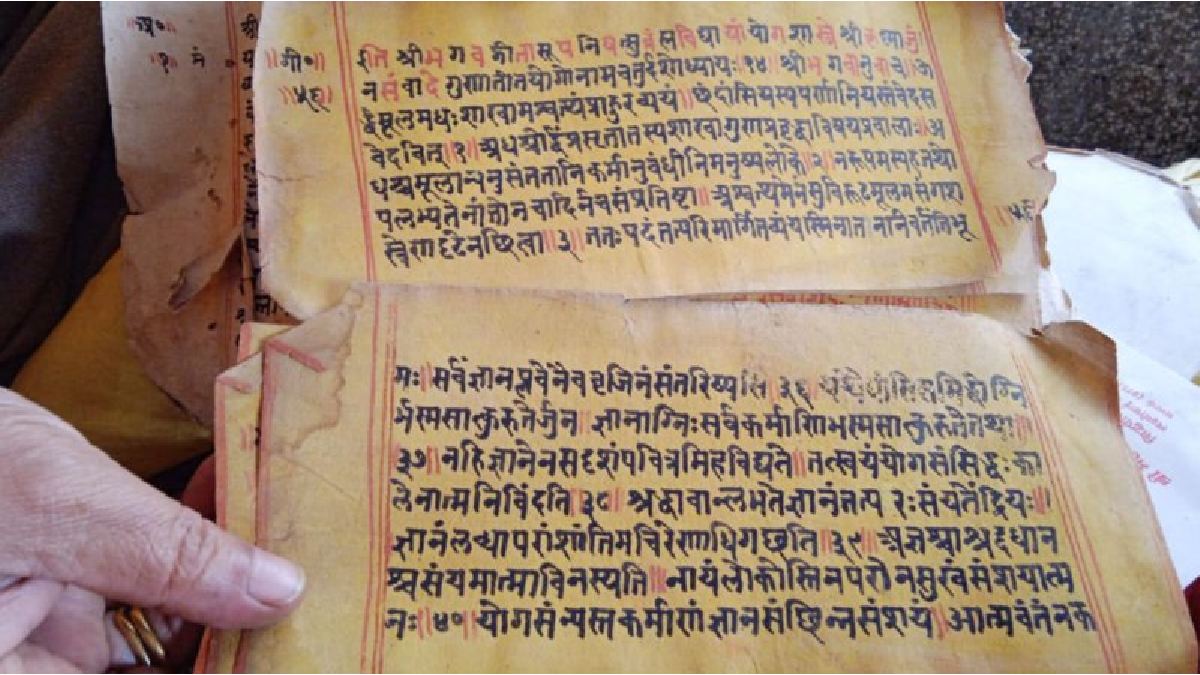 इति श्रीभगवद्गीतासूपनिषत्सु श्री
न संवादे गुणातीतयोगोनामचतुर्दशोध्यायः १४ ॥ श्रीभगवानुवाच ऊ
र्द्ध्वमूलमधःशाखामश्वत्थंप्राहुरव्ययं ॥ छंदांसियस्यपर्णानियस्तंवेदस
वेदवित् १ ॥ अधश्चोर्द्ध्वंप्रसृतातस्यशाखागुणाप्रवृद्धाविषयप्रवालाः ॥ अ
धश्चमूलान्यनुसंततानिकर्मानुबंधीनिमनुष्यलोके २ ॥ नरूपमस्येहतथो
पलभ्यतेनांतोनचादिर्नचसंप्रतिष्ठा ॥ अश्वत्थमेनंसुविरूढमूलमसंगश
स्त्रेणदृढेनछित्वा ॥ ३ ॥ ततःपदंतत्परिमार्गितव्यंयस्मिन्गता ननिवर्तंतिभू
मः ॥ सर्वंज्ञानप्लवेनैववृजिनंसंतरिष्यसि ॥ ३६ ॥
र्भस्मसात्कुरुतेर्जुन ॥ ज्ञानाग्निःसर्वकर्माणिभस्मसात्कुरुतेतथा ॥
३७ ॥ नहिज्ञानेनसदृशंपवित्रमिहविद्यते ॥ तत्स्वयंयोगसंसिद्धःका
लेनात्मनिविंदति ॥ ३८ ॥ श्रद्धावान्लभतेज्ञानंतत्प रःसंयतेंद्रियः ॥
ज्ञानंलब्धापरांशांतिमचिरेणाधिगछति ॥ ३९ ॥ अज्ञश्चाश्रद्दधान
श्चसंयमात्माविनस्यति ॥ नायंलोकोस्तिनपरोनसुखंसंशयात्म
नः ॥ ४० ॥ योगसंन्यस्तकर्माणंज्ञानसंछिन्नसंशयं ॥ आत्मवंतंनक